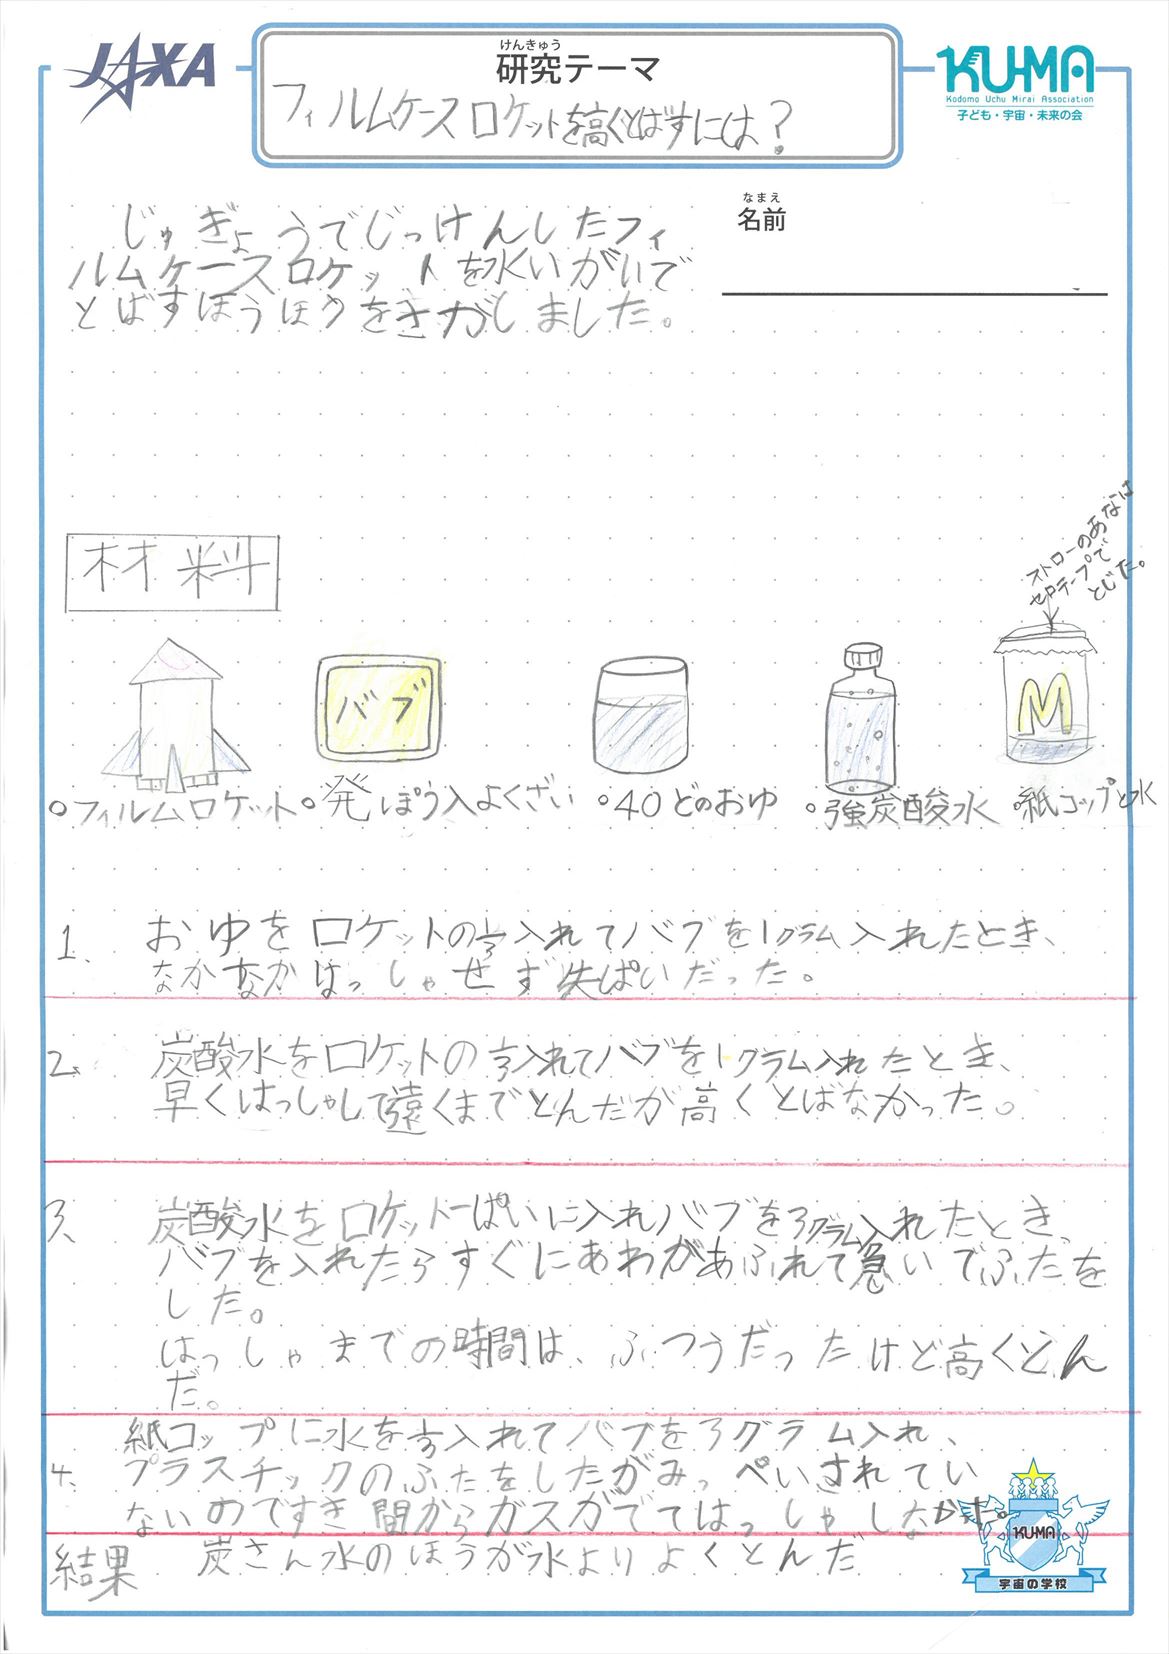 JAXA
けんきゅう
研究テーマ
フィルムケースロケットを高くとばすには?
KU-MA
Kodomo Uchu Mirai Association
子ども・宇宙・未来の会
なまえ
名前
じゅぎょうでじっけんしたフィ
ルムケースロケットを水いがいで
とばすほうほうをさがしました。
材料
ストローのあなは
セロテープで
とじた。
バブ
M
・フィルムロケット
・発ぽう入よくざい
・40どのおゆ
・強炭酸水
・紙コップと水
1、おゆをロケットの1/3入れてバブを1グラム入れたとき、
なかなかはっしゃせず失ぱいだった。
2、炭酸水をロケットの1/3入れてバブを1グラム入れたとき、
早くはっしゃして遠くまでとんだが高くとばなかった。
3、炭酸水をロケット一ぱいに入れバブを3グラム入れたとき、
バブを入れたらすぐにあわがあふれて急いでふたを
した。
はっしゃまでの時間は、ふつうだったけど高くとん
だ。
紙コップに水を1/3入れてバブを3グラム入れ、
4、プラスチックのふたをしたがみっぺいされてい
ないのですき間からガスがでてはっしゃしなかった。
結果 炭さん水のほうが水よりよくとんだ
KU-MA
宇宙の学校